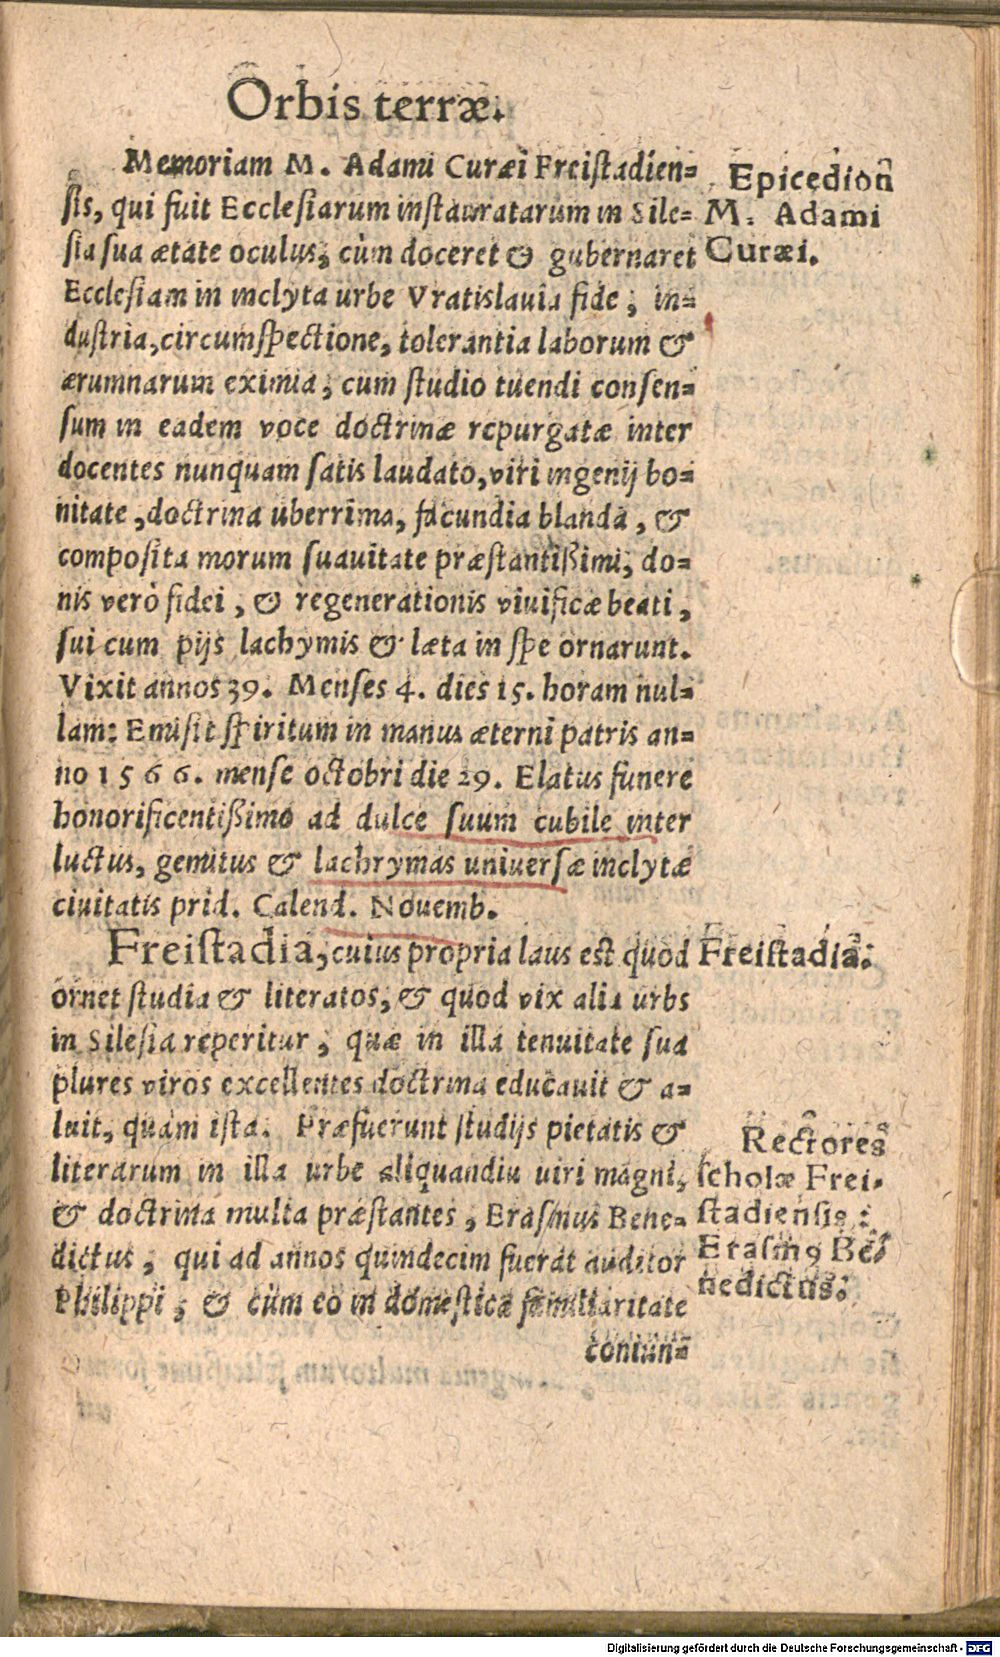 Orbis terræ.
Memoriam M. Adami Curæi Freistadien=
sis, qui fuit Ecclesiarum instauratarum in Sile=
sia sua ætate oculus, cùm doceret & gubernaret
Ecclesiam in inclyta urbe Vratislauia fide, in=
dustria, circumspectione, tolerantia laborum &
ærumnarum eximia, cum studio tuendi consen=
sum in eadem voce doctrinæ repurgatæ inter
docentes nunquam satis laudato, viri ingenij bo=
nitate, doctrina uberrima, facundia blanda, &
composita morum suauitate præstantißimi, do=
nis verò fidei, & regenerationis viuificæ beati,
sui cum pijs lachymis & læta in spe ornarunt.
Vixit annos 39. Menses 4. dies 15. horam nul=
lam: Emisit spiritum in manus æterni patris an=
no 1566. mense octobri die 29. Elatus funere
honorificentißimo ad dulce suum cubile inter
luctus, gemitus & lachrymas uniuersæ inclytæ
ciuitatis prid. Calend. Nouemb.
Freistadia, cuius propria laus est quod
ornet studia & literatos, & quod vix alia urbs
in Silesia reperitur, quæ in illa tenuitate sua
plures viros excellentes doctrina educauit & a=
luit, quàm ista. Præfuerunt studijs pietatis &
literarum in illa urbe aliquandiu uiri magni,
& doctrina multa præstantes, Erasmus Bene=
dictus, qui ad annos quindecim fuerat auditor
Philippi, & cùm eo in domestica familiaritate
coniun=
Epicedion
M. Adami
Curæi.
Freistadia:
Rectores
scholæ Frei-
stadiensis:
Erasmꝰ Be-
nedictus:
Digitalisierung gefördert durch die Deutsche Forschungsgemeinschaft - DFG